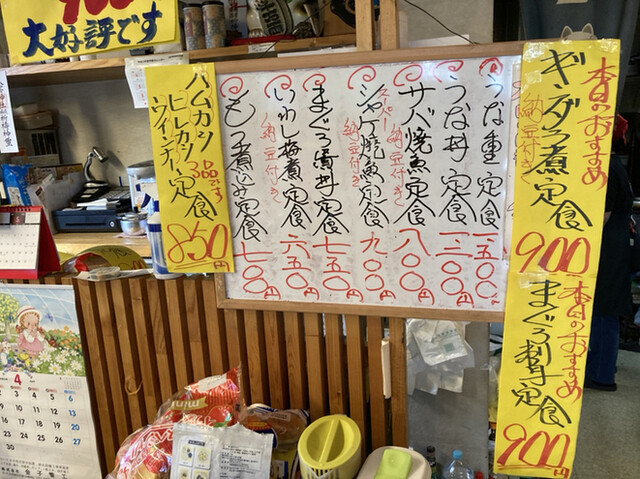 大好評です
本日のおすすめ
ギンダラ煮定食
納豆付き
900
本日のおすすめ
まぐろ刺定食
900円
うな重定食
一五〇〇円
うな丼定食
一二〇〇円
サバ焼魚定食
納豆付き
八〇〇円
スーパー
シャケ焼魚定食
納豆付き
九〇〇円
まぐろ漬丼定食
七五〇円
いわし梅煮定食
納豆付き
六五〇円
もつ煮込み定食
七〇〇円
ハムカツ
ヒレカツ
3品です
ウインナー定食
850円
4